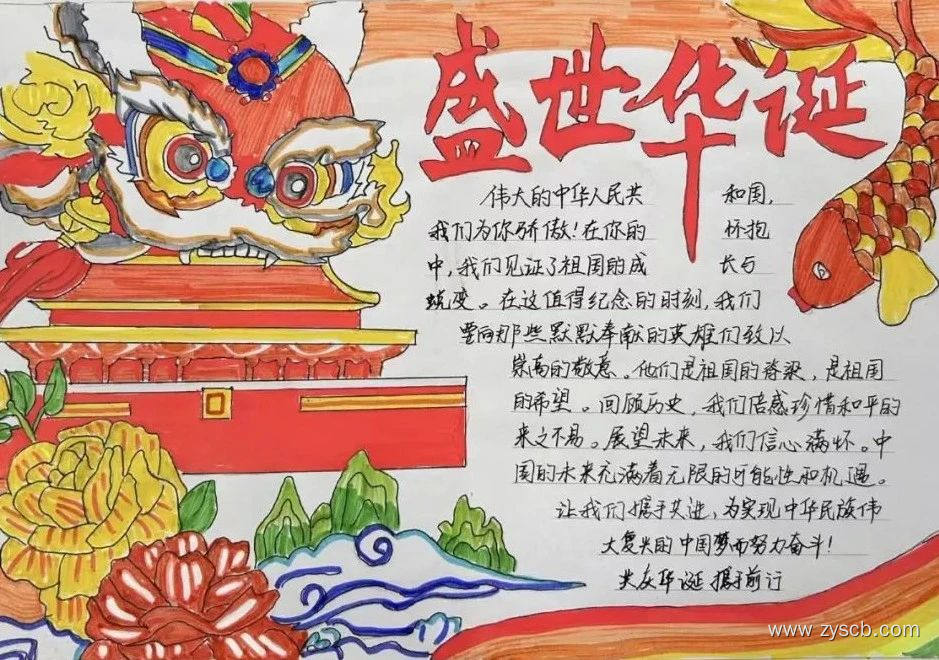 盛世华诞
伟大的中华人民共和国，
我们为你骄傲！在你的怀抱
中，我们见证了祖国的成长与
蜕变。在这值得纪念的时刻，我们
要向那些默默奉献的英雄们致以
崇高的敬意。他们是祖国的脊梁，是祖国
的希望。回顾历史，我们倍感珍惜和平的
来之不易。展望未来，我们信心满怀。中
国的未来充满着无限的可能性和机遇。
让我们携手共进，为实现中华民族伟
大复兴的中国梦而努力奋斗！
共庆华诞 携手前行
www.zyscb.com